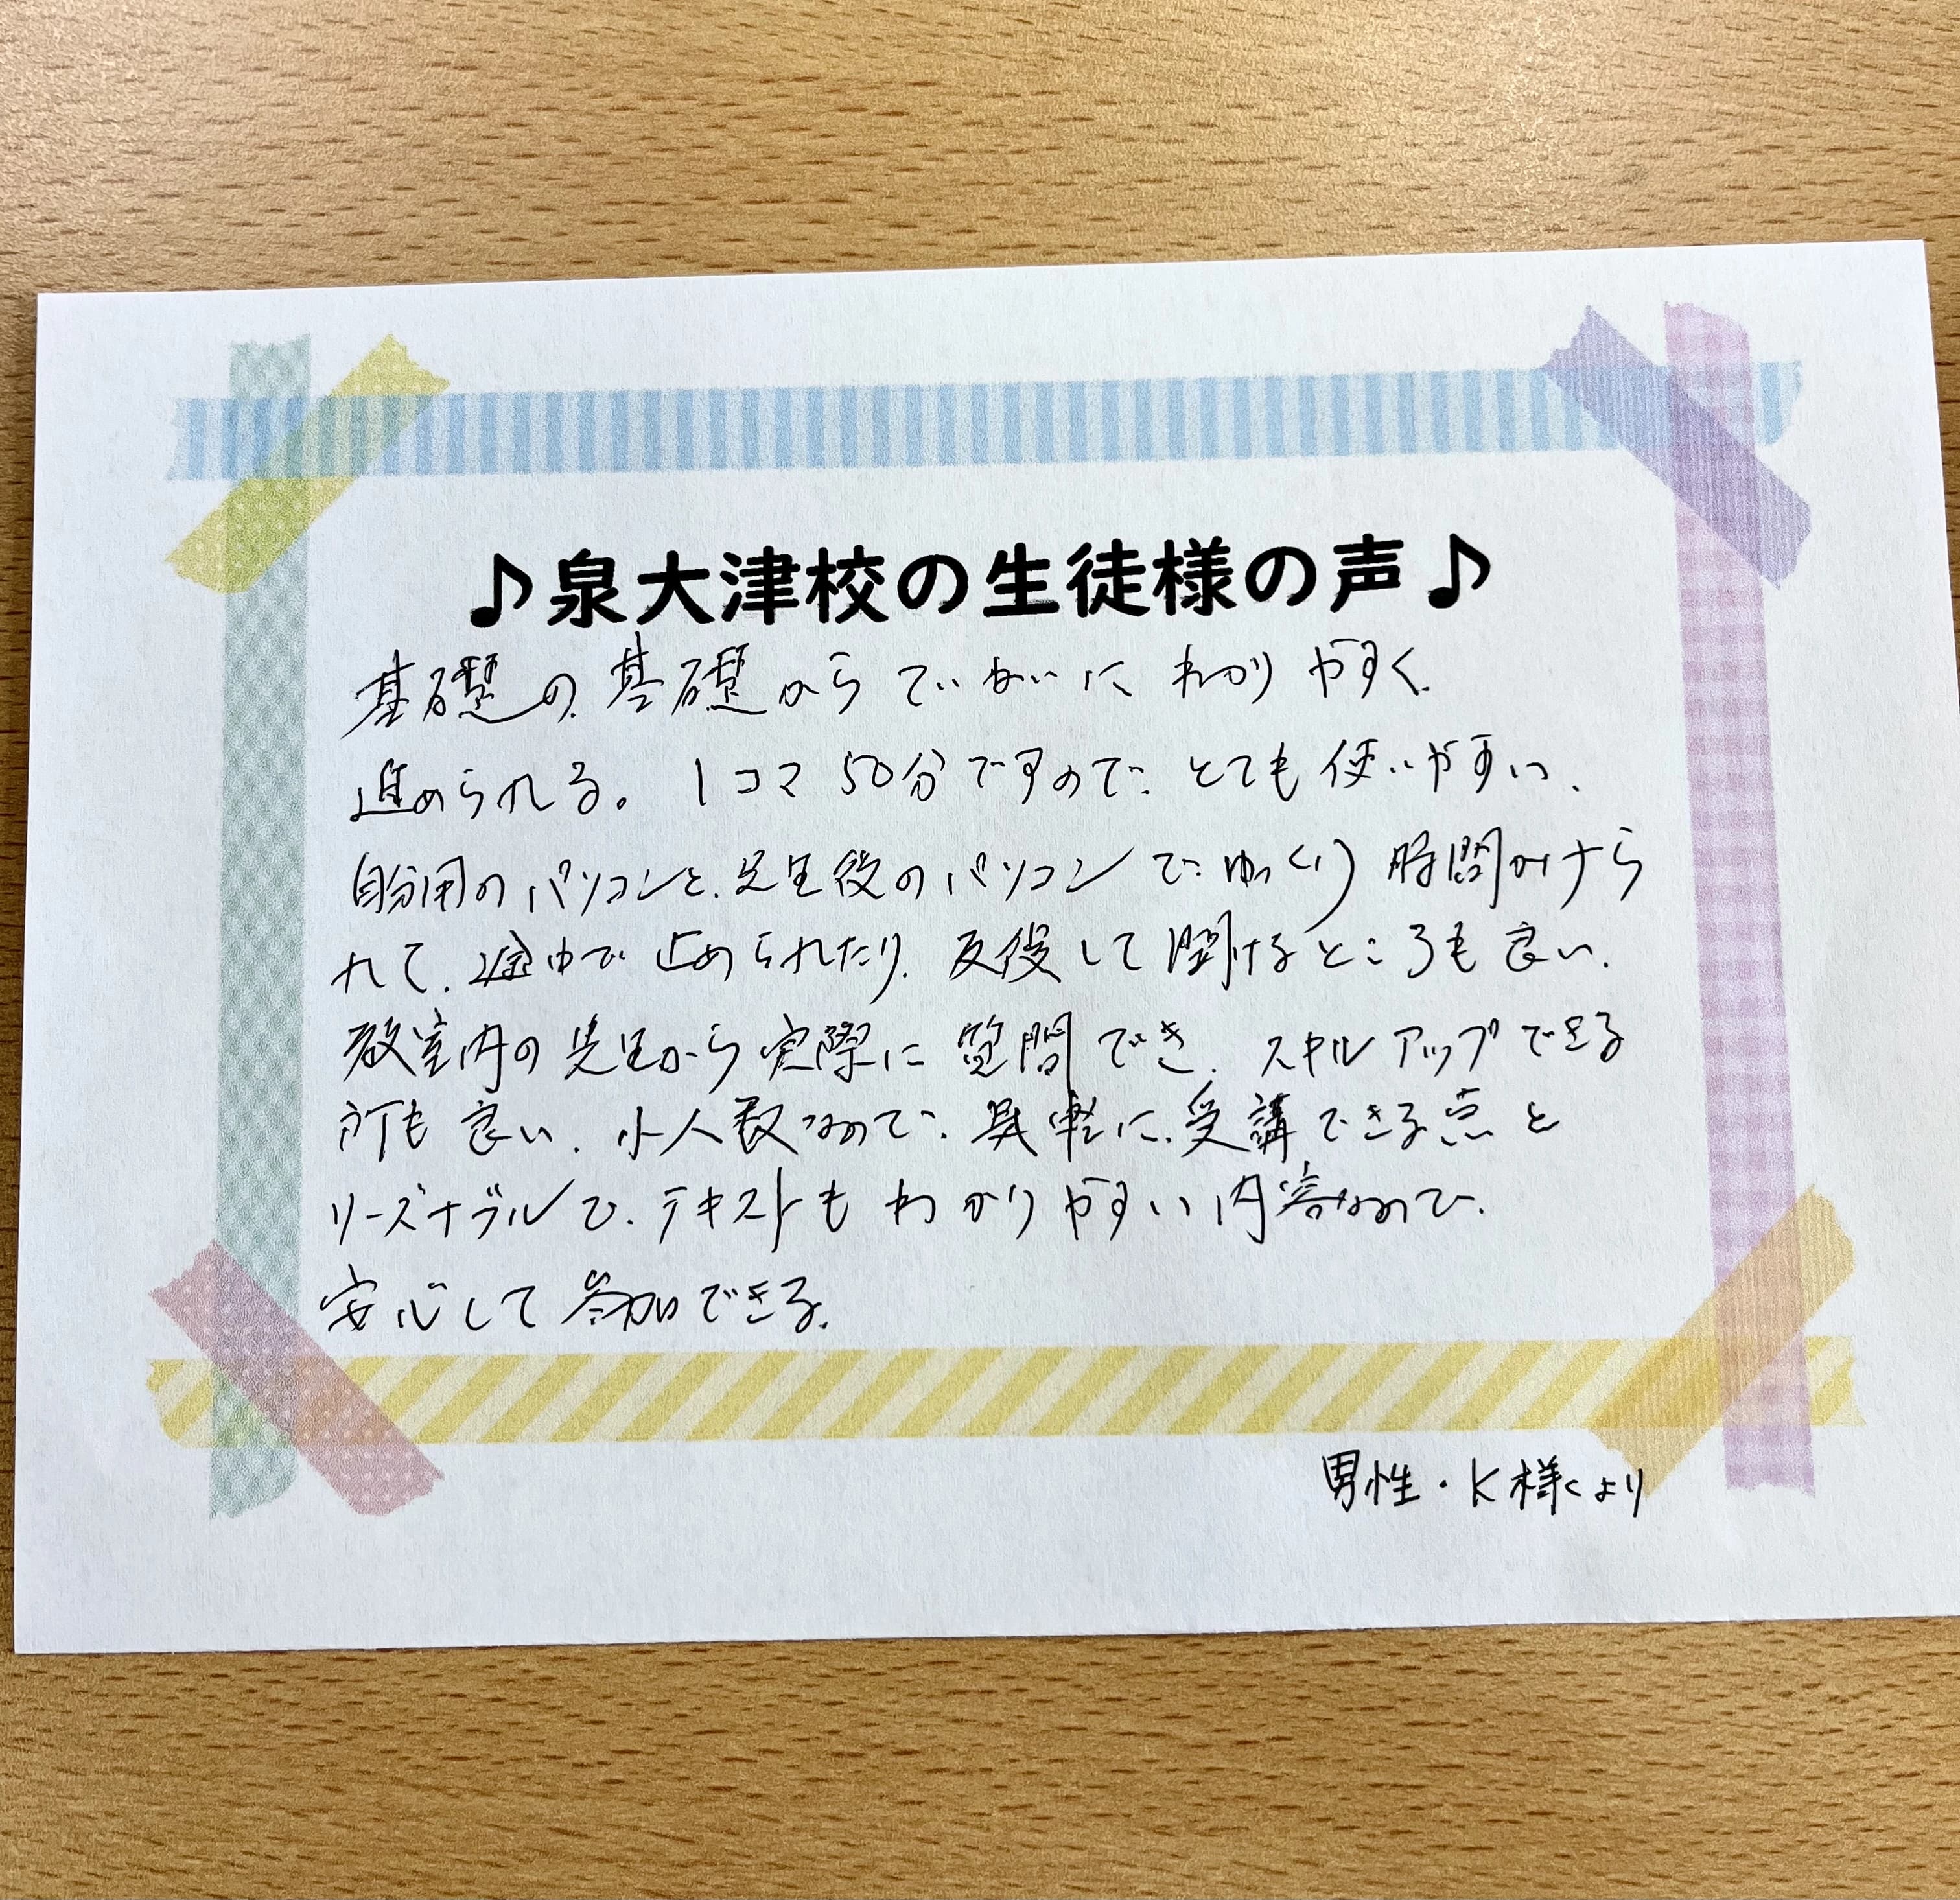 ♪泉大津校の生徒様の声♪
基礎の基礎からていねいにわかりやすく、
進められる。1コマ50分ですので、とても使いやすい、
自分用のパソコンと、先生役のパソコンで、ゆっくり時間かけら
れて、途中で止められたり、反復して聞けるところも良い、
教室内の先生から実際に質問でき、スキルアップできる
所も良い、小人数なので、気軽に、受講できる点と
リーズナブルで、テキストもわかりやすい内容なので、
安心して参加できる。
男性・K様より